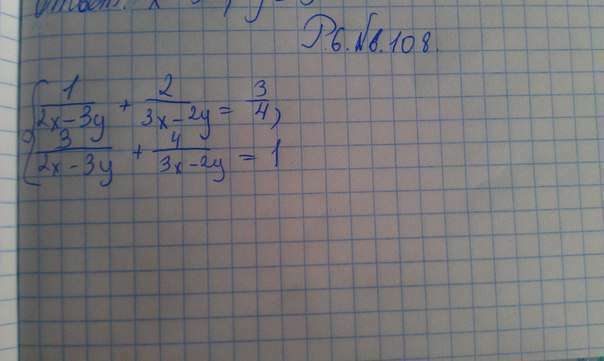 Р6.№8.108.
{ 1/(2x-3y) + 2/(3x-2y) = 3/4,
3/(2x-3y) + 4/(3x-2y) = 1